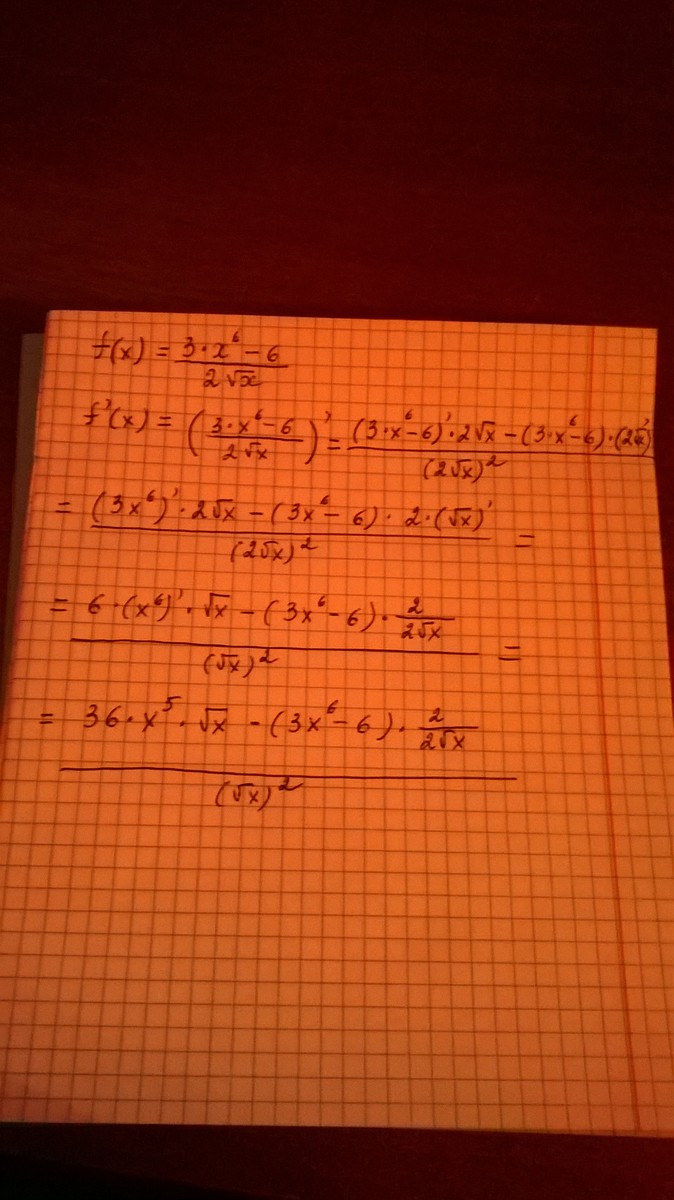 f(x) = (3·x⁶ − 6)/(2√x)
f'(x) = ((3·x⁶ − 6)/(2√x))' = ((3·x⁶ − 6)'·2√x − (3·x⁶ − 6)·(2√x)')/(2√x)²
= ((3x⁶)'·2√x − (3x⁶ − 6)·2·(√x)')/(2√x)² =
= (6·(x⁶)'·√x − (3x⁶ − 6)·2/(2√x))/(√x)² =
= (36·x⁵·√x − (3x⁶ − 6)·2/(2√x))/(√x)²